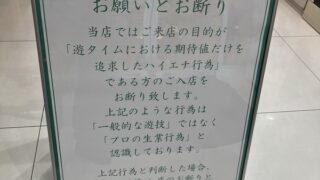 お願いとお断り
当店ではご来店の目的が
「遊タイムにおける期待値だけを
追求したハイエナ行為」
である方のご入店を
お断り致します。
上記のような行為は
「一般的な遊技」ではなく
「プロの生業行為」と
認識しております。
上記行為と判断した場合、